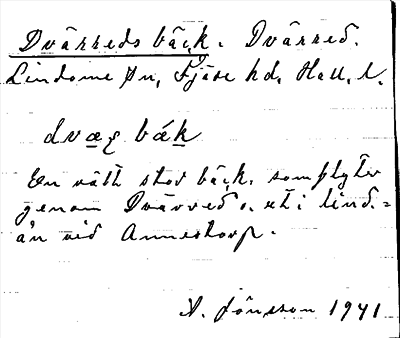 Dvärreds bäck. Dvärred.
Lindome sn, Fjäre hd, Hall. l.
dvæ bák
En rätt stor bäck, som flyter
genom Dvärred o. ut i Lind.=
ån vid Annestorp.
A. Jönsson 1941